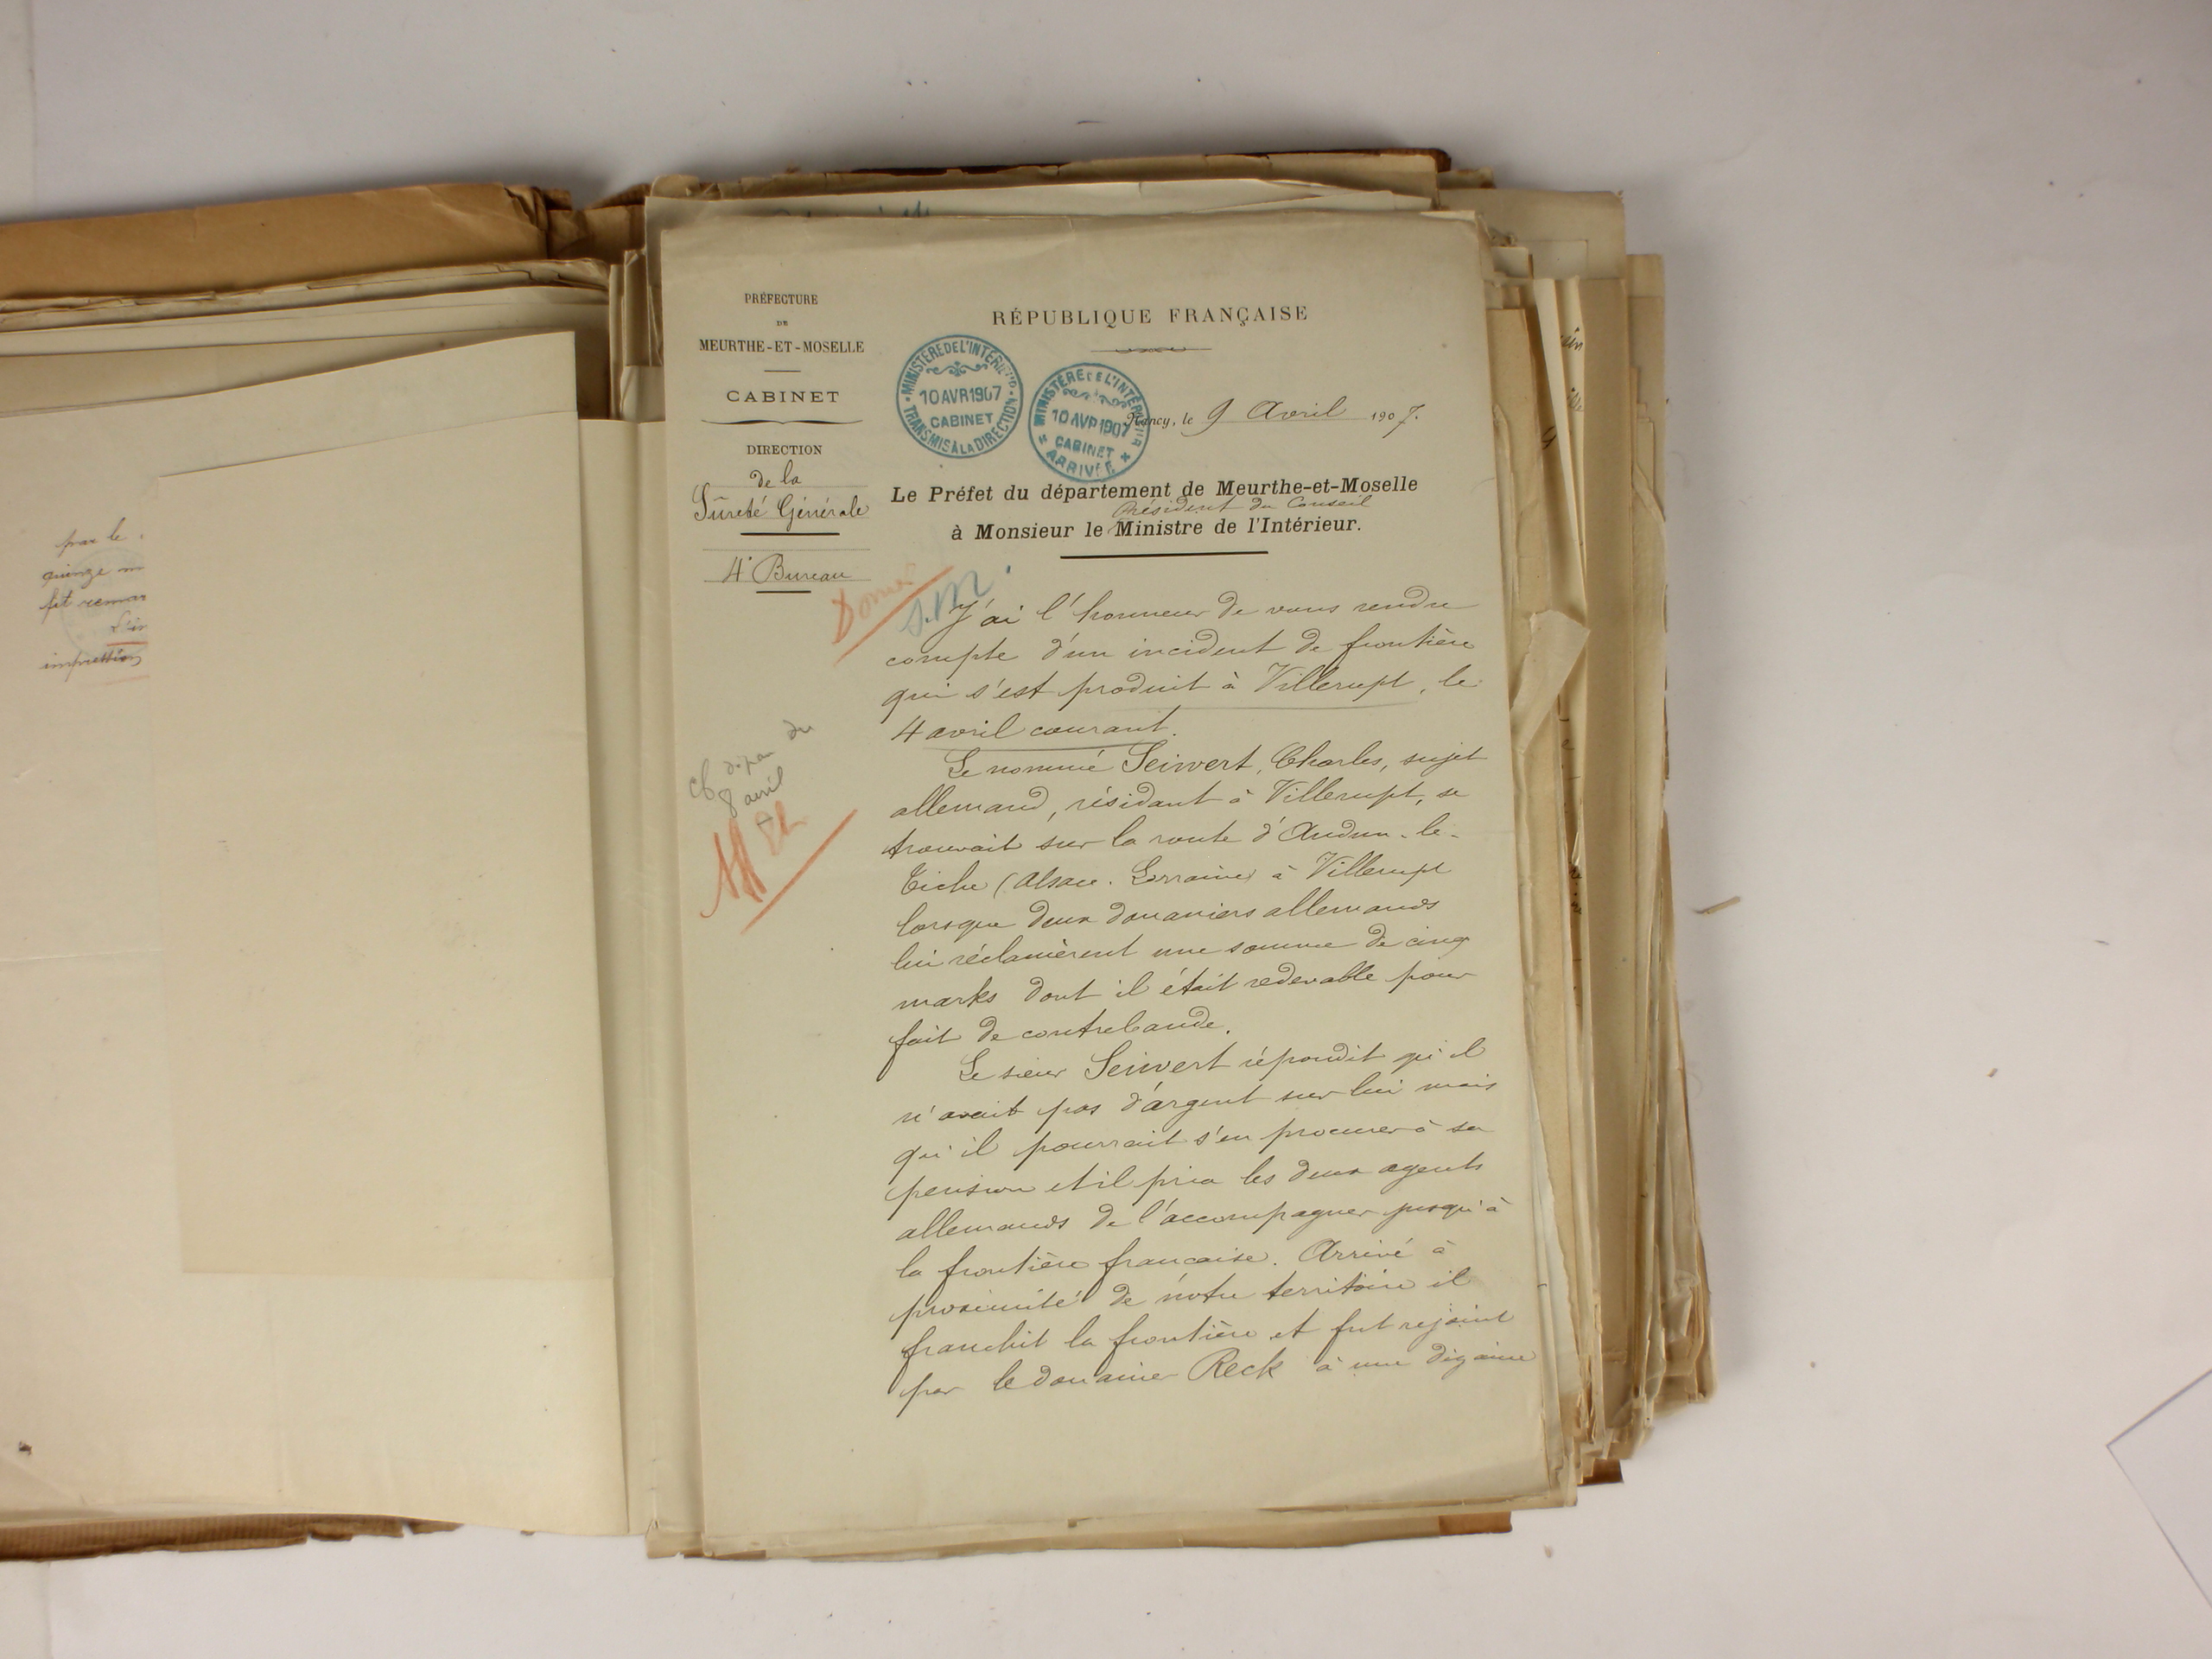 par le
quinze
fit remar
impression
PRÉFECTURE
DE
MEURTHE-ET-MOSELLE
CABINET
DIRECTION
de la
Sûreté Générale
4e Bureau
RÉPUBLIQUE FRANÇAISE
MINISTÈRE DE L'INTÉRIEUR
10 AVR 1907
CABINET
TRANSMIS À LA DIRECTION
MINISTÈRE DE L'INTÉRIEUR
10 AVR 1907
CABINET
ARRIVÉE
Nancy, le 9 Avril 1907.
Le Préfet du département de Meurthe-et-Moselle
Président du Conseil
à Monsieur le Ministre de l'Intérieur.
J'ai l'honneur de vous rendre
compte d'un incident de frontière
qui s'est produit à Villerupt, le
4 avril courant.
du
8 avril
Le nommé Seiwert, Charles, sujet
allemand, résidant à Villerupt, se
trouvait sur la route d'Audun-le-
Tiche (Alsace-Lorraine) à Villerupt
lorsque deux douaniers allemands
lui réclamèrent une somme de cinq
marks dont il était redevable pour
fait de contrebande.
Le sieur Seiwert répondit qu'il
n'avait pas d'argent sur lui mais
qu'il pourrait s'en procurer à sa
pension et il pria les deux agents
allemands de l'accompagner jusqu'à
la frontière française. Arrivé à
proximité de notre territoire il
franchit la frontière et fut rejoint
par le douanier Reck à une dizaine